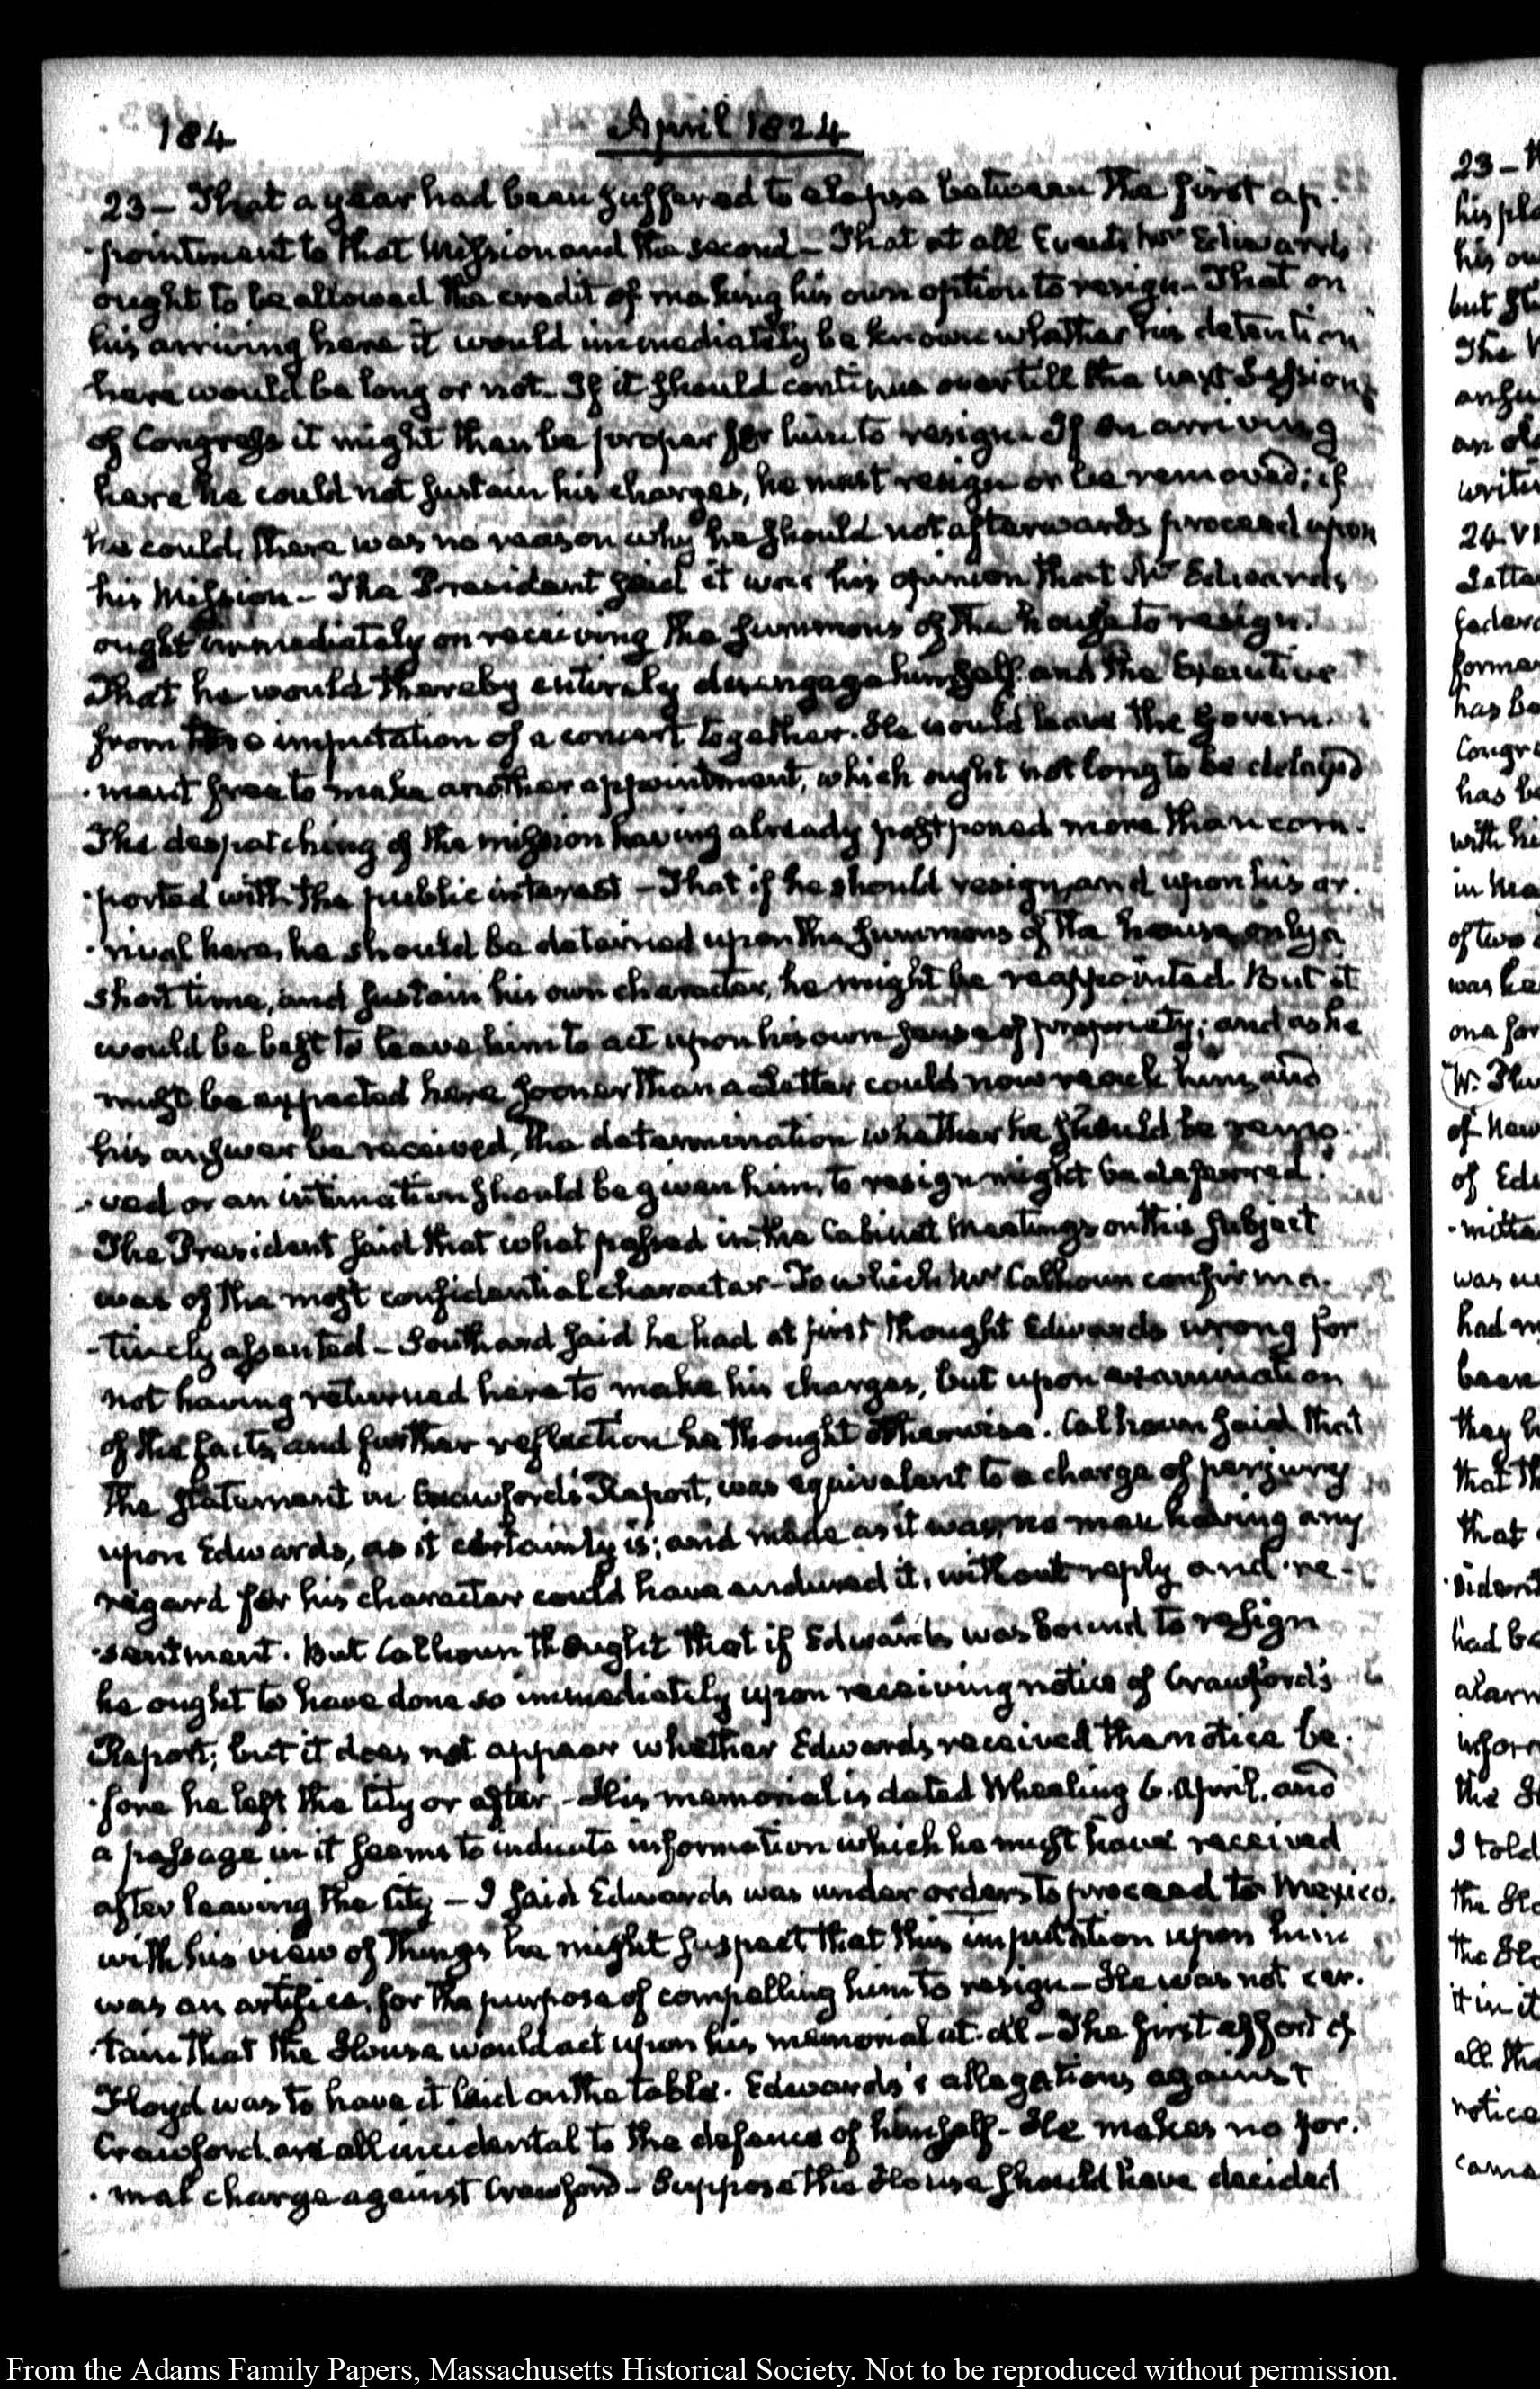 184
April 1824
23 - That a year had been suffered to elapse between the first ap-
-pointment to that Mission and the second - That at all Events Mr Edwards
ought to be allowed the credit of making his own option to resign - That on
his arriving here it would immediately be known whether his detention
here would be long or not. If it should continue over till the next Session
of Congress it might then be proper for him to resign. If on arriving
here he could not sustain his charges, he must resign or be removed; if
he could, there was no reason why he should not afterwards proceed upon
his Mission - The President said it was his opinion that Mr Edwards
ought immediately on receiving the summons of the house to resign.
That he would thereby entirely disengage himself and the Executive
from imputation of a concert together. He would leave the Govern-
-ment free to make another appointment, which ought not long to be delayed
The despatching of the mission having already postponed more than com-
-ported with the public interest - That if he should resign, and upon his ar-
-rival here, he should be detained upon the summons of the house, only a
short time, and sustain his own character, he might be reappointed. But it
would be best to leave him to act upon his own sense of propriety; and as he
might be expected here sooner than a Letter could now reach him, and
his answer be received, the determination whether he should be remo-
-ved or an intimation should be given him, to resign might be deferred.
The President said that what passed in the Cabinet Meetings on this subject
was of the most confidential character - To which Mr Calhoun confirma-
-tively assented - Southard said he had at first thought Edwards wrong for
not having returned here to make his charges, but upon examination
of the facts, and further reflection he thought otherwise. Calhoun said that
the statement in Crawford's Report, was equivalent to a charge of perjury
upon Edwards, as it certainly is; and made as it was, no man having any
regard for his character could have endured it, without reply and re-
-sentment. But Calhoun thought that if Edwards was bound to resign
he ought to have done so immediately upon receiving notice of Crawford's
Report; but it does not appear whether Edwards received the notice be-
-fore he left the City or after - His memorial is dated Wheeling 6. April. and
a passage in it seems to indicate information which he must have received
after leaving the City - I said Edwards was under orders to proceed to Mexico.
with his view of things he might suspect that this imputation upon him
was an artifice, for the purpose of compelling him to resign - He was not cer-
-tain that the House would act upon his memorial at all - The first effort of
Floyd was to have it laid on the table. Edwards's allegations against
Crawford are all incidental to the defence of himself - He makes no for-
-mal charge against Crawford - Suppose the House should have decided
23 -
his
his
but
The
an
24.
has
Congr
has
with
in
of two
was
one for
W.
of New
of
was
had
been
they
that
that
had
the
I told
the
the
it in it
all
notice
came
From the Adams Family Papers, Massachusetts Historical Society. Not to be reproduced without permission.